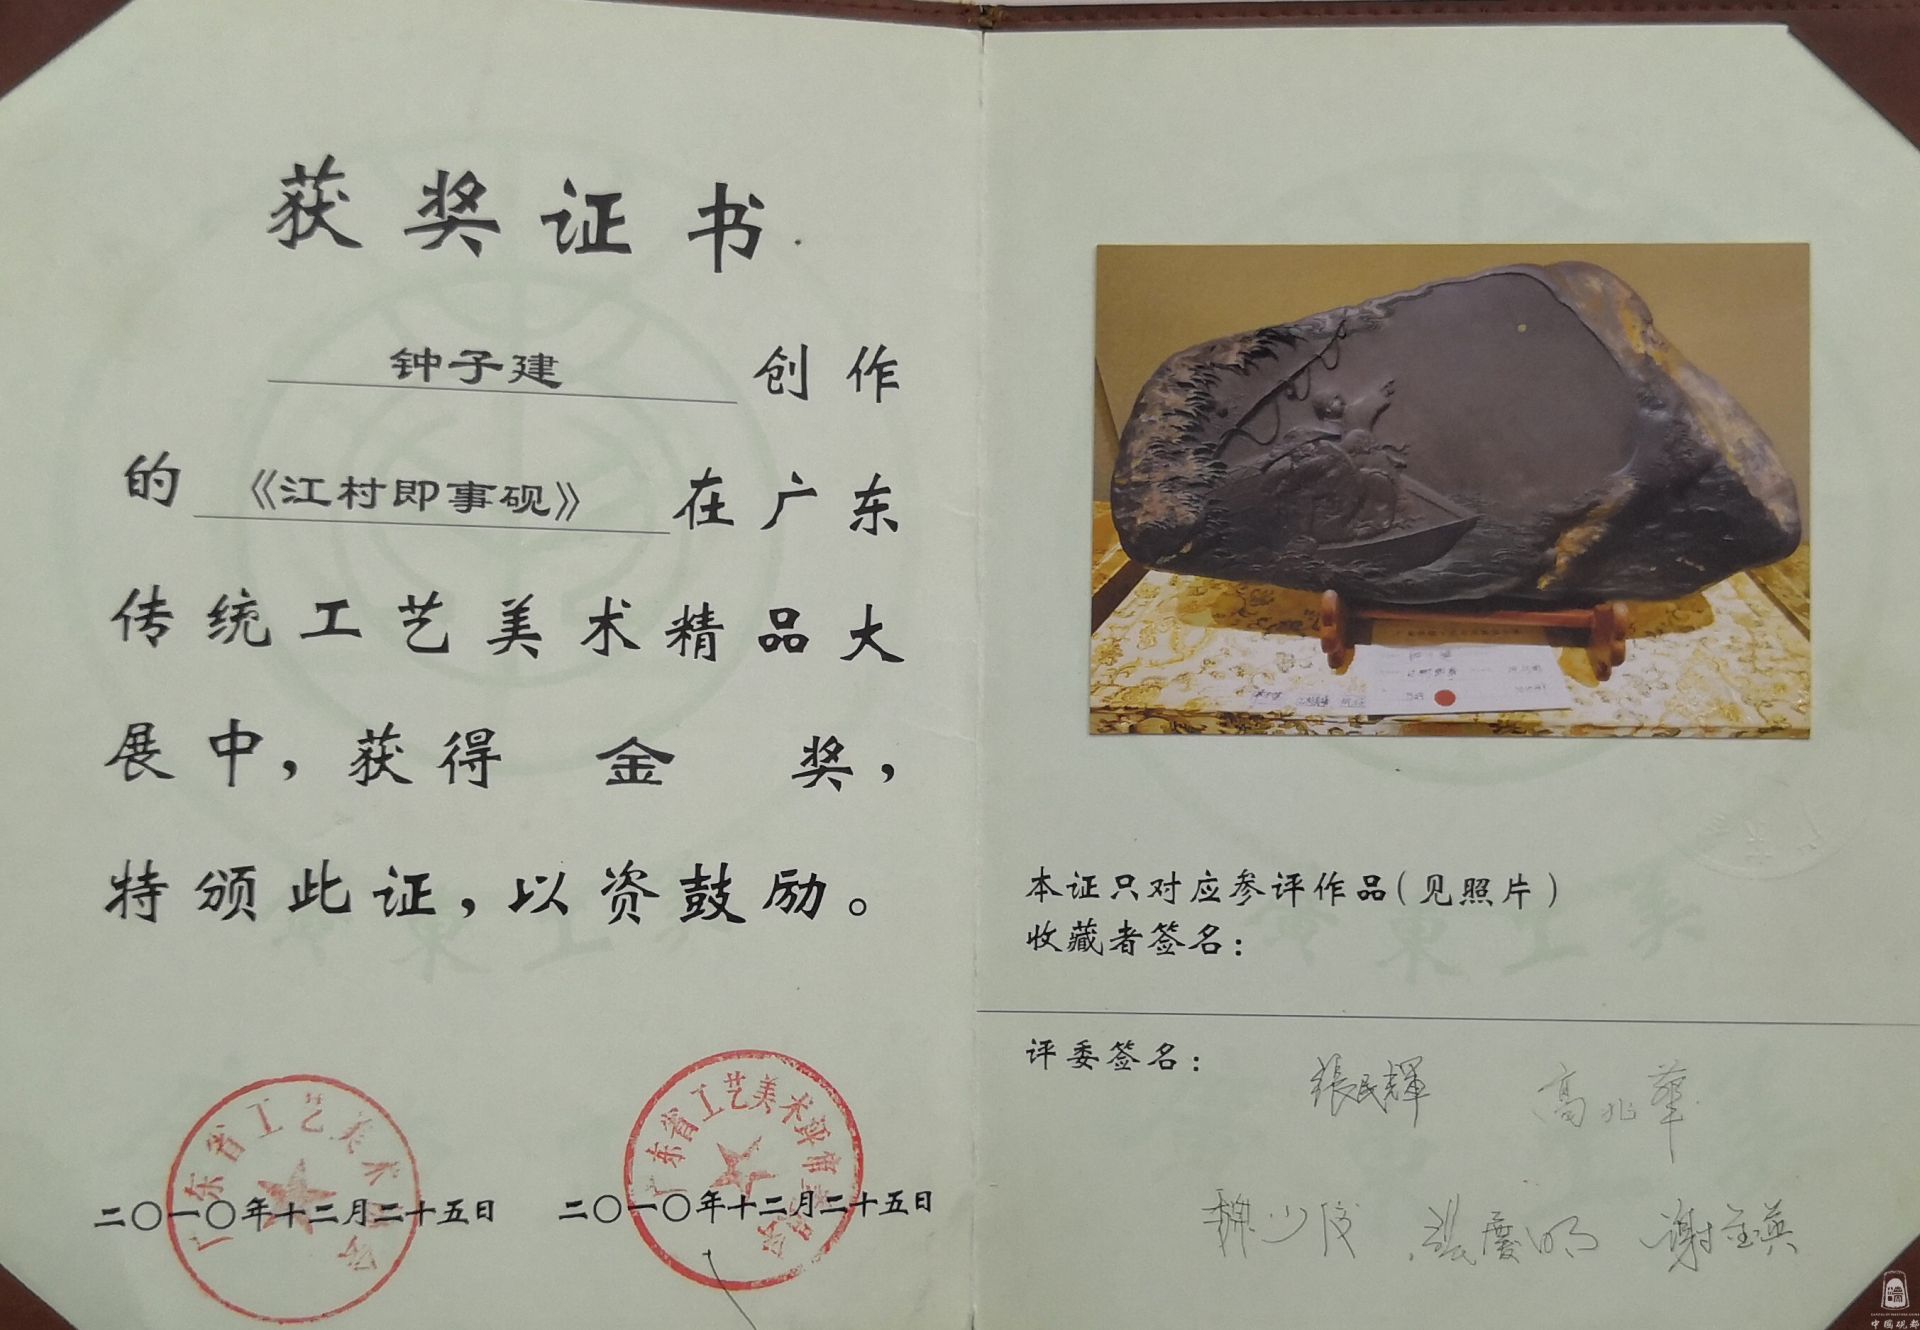 获奖证书
钟子建 创作
的《江村即事砚》在广东
传统工艺美术精品大
展中，获得 金 奖，
特颁此证，以资鼓励。
广东省工艺美术
二〇一〇年十二月二十五日
广东省工艺美术评审委员会
二〇一〇年十二月二十五日
本证只对应参评作品(见照片)
收藏者签名：
评委签名：
張民輝 高兆華
張慶明
中國硯都